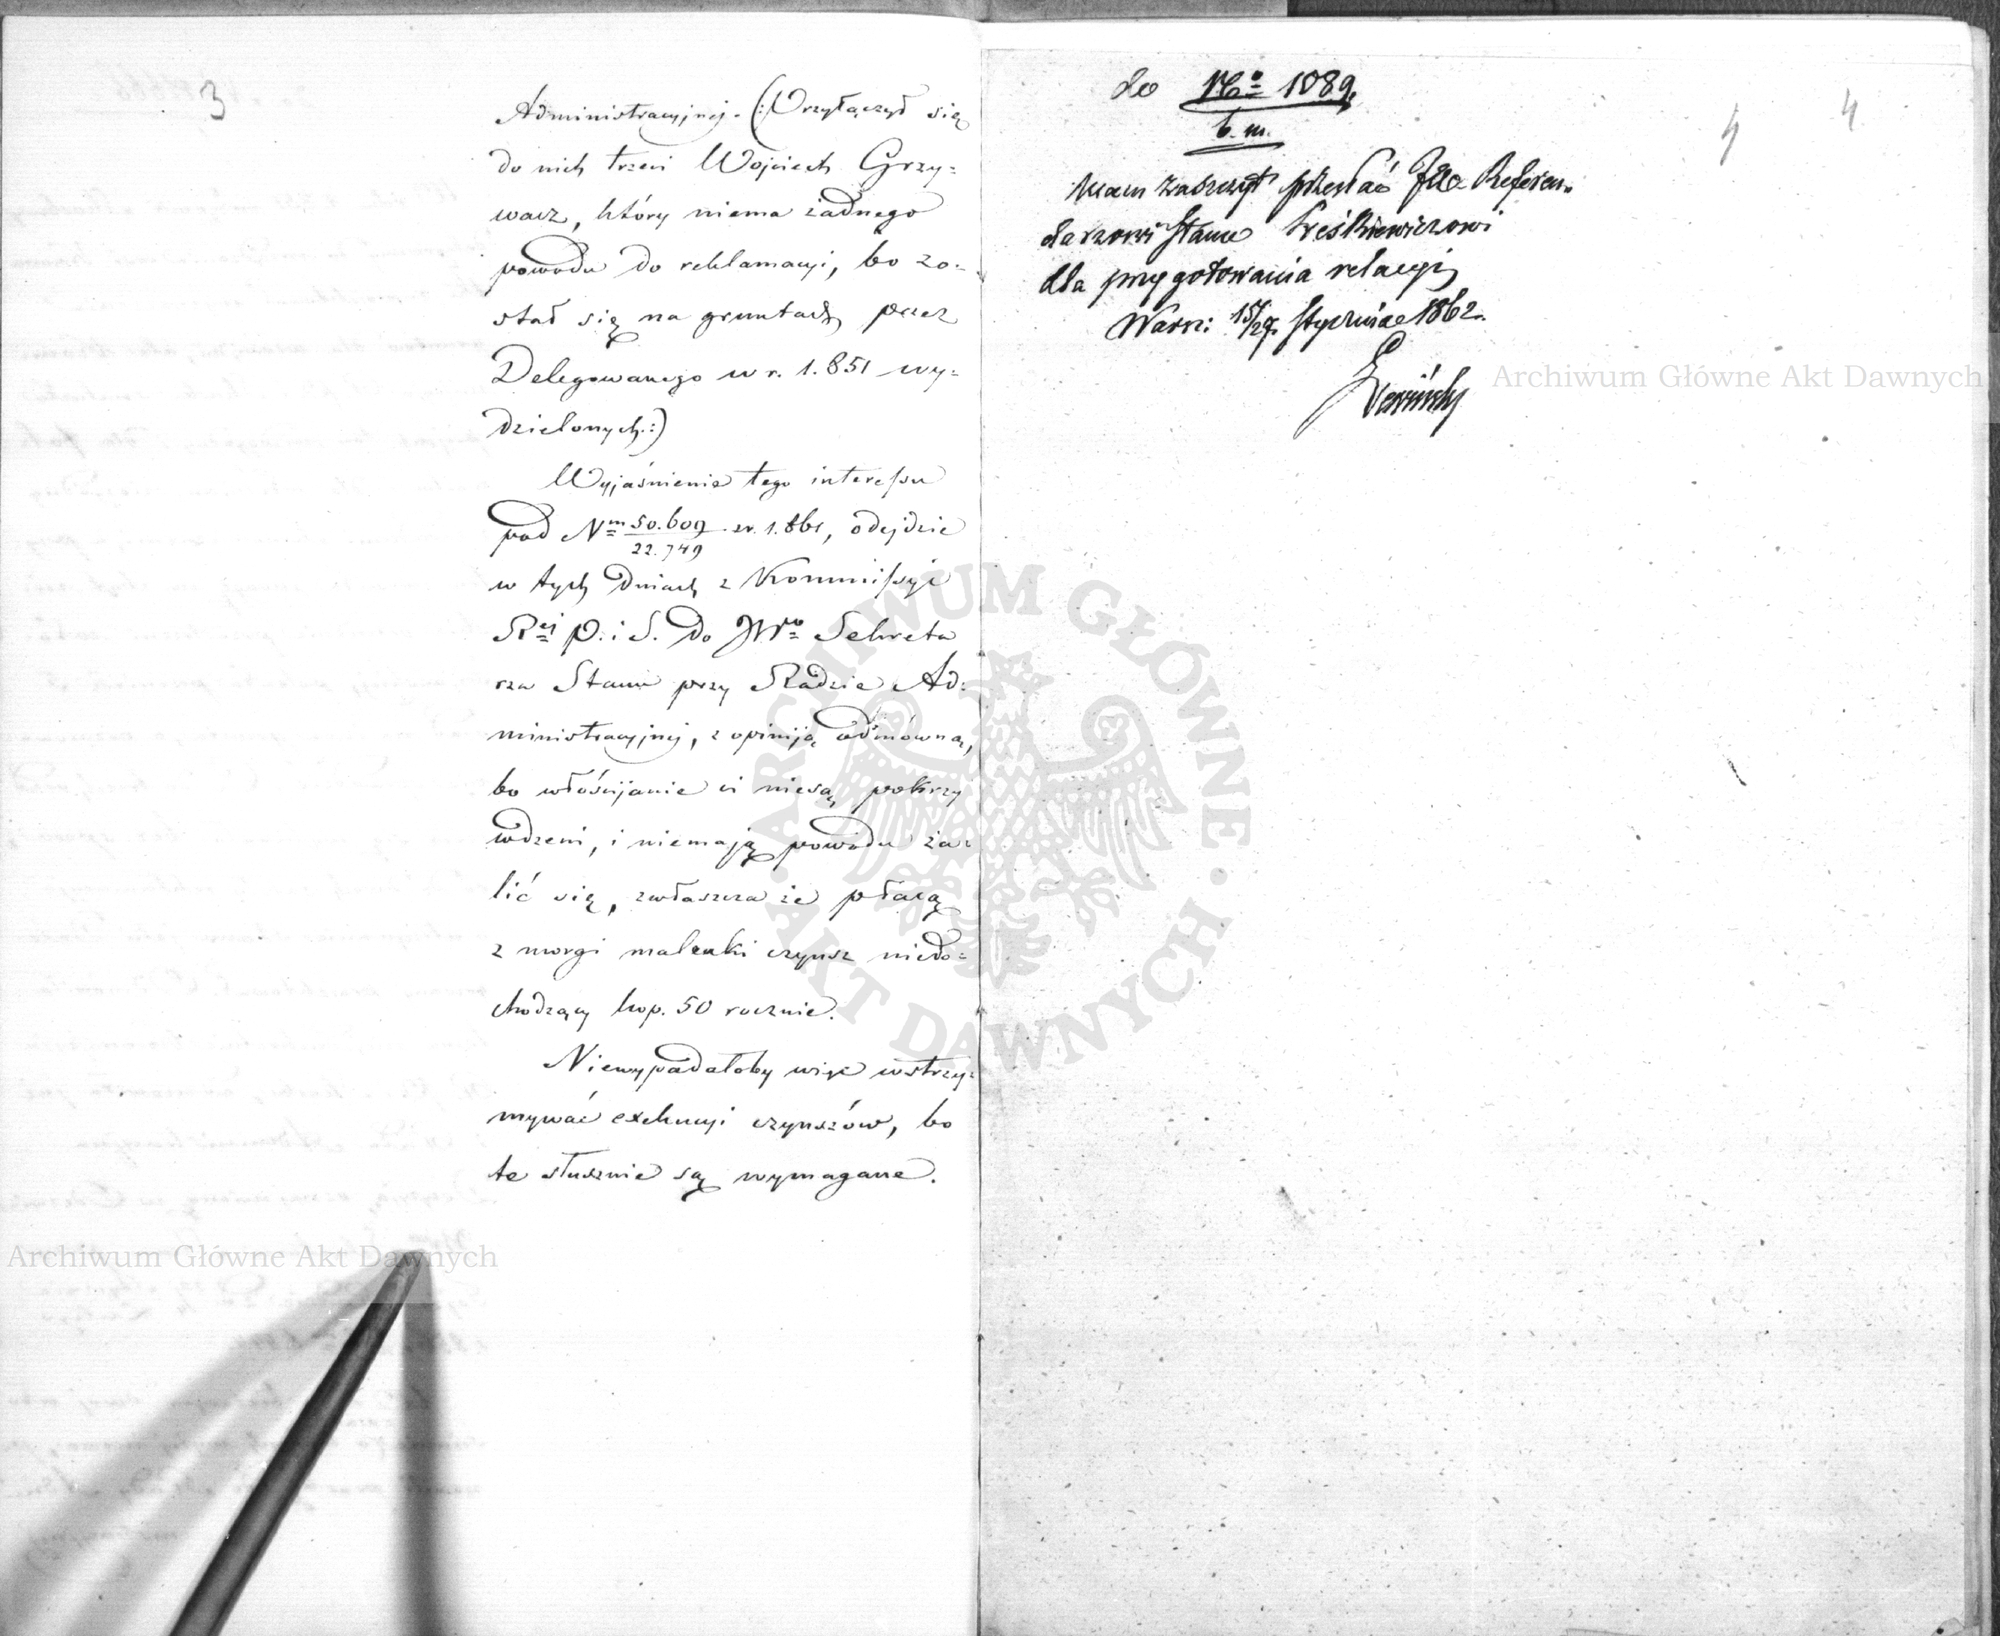 3
Administracyjnej. (:Przyłączył się
do nich trzeci Wojciech Grzy=
wacz, który niema żadnego
powodu do reklamacyi, bo zo=
stał się na gruntach przez
Delegowanego w r. 1.851 wy=
dzielonych:)
Wyjaśnienie tego interessu
pod Nm 50.609/22.749 zr. 1.861, odejdzie
w tych dniach z Kommissyi
Rej P. i S. do JWo Sekreta
rza Stanu przy Radzie Ad=
ministracyjnej, z opiniją odmówną,
bo włościjanie ci niesą pokrzy
wdzeni, i niemają powodu ża=
lić się, zwłaszcza że płacą
z morgi malenki czynsz niedo=
chodzący kop. 50 rocznie.
Niewypadałoby więc wstrzy=
mywać exekucyi czynszów, bo
te słusznie są wymagane.
do No 1089.
b. m.
4 4
Mam zaszczyt przesłać JW Referen=
darzowi Stanu
dla przygotowania relacyi
Warsz: 15/27 Stycznia 1862.
Archiwum Główne Akt Dawnych
Archiwum Główne Akt Dawnych
ARCHIWUM GŁÓWNE · AKT DAWNYCH ·